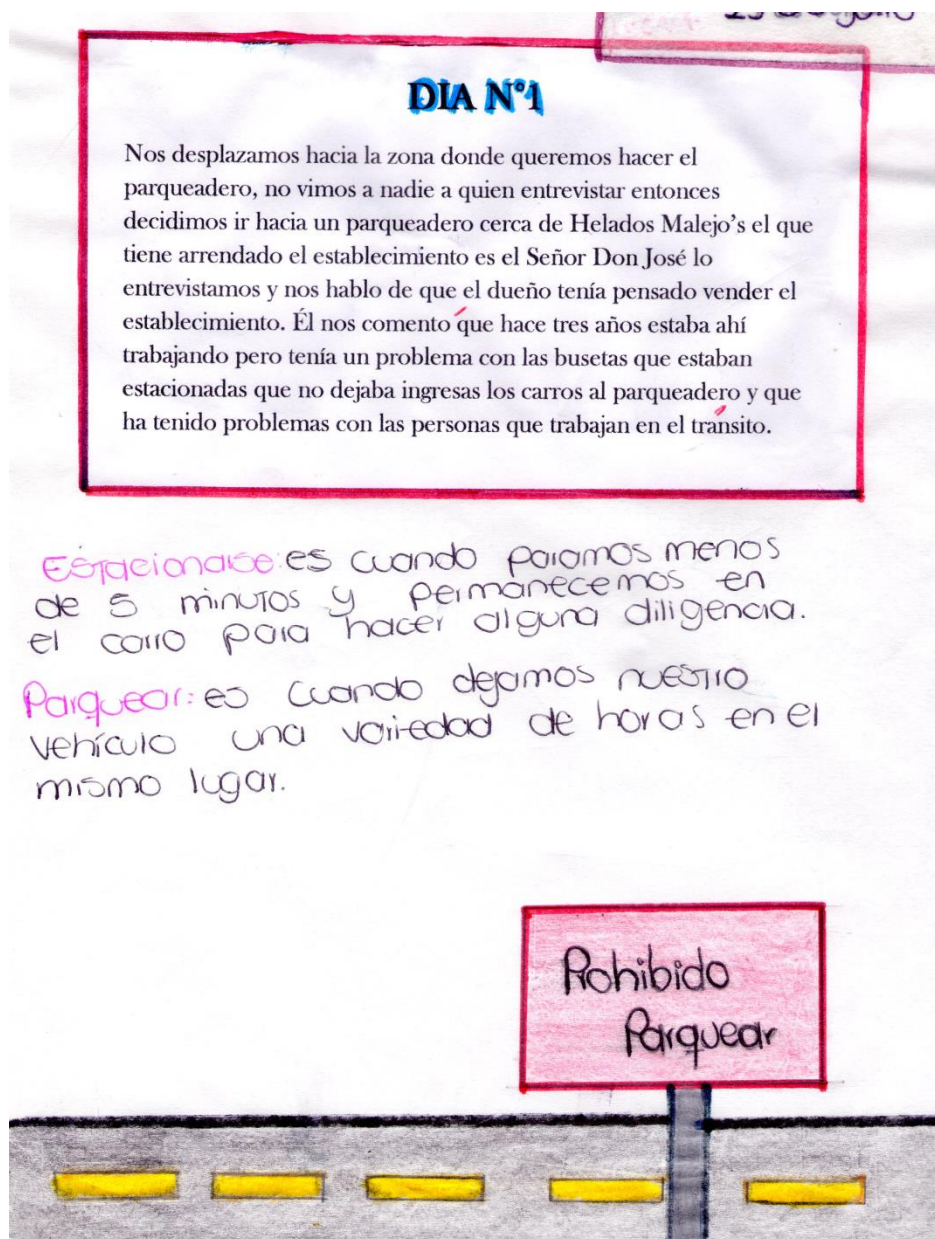 DIA N°1
Nos desplazamos hacia la zona donde queremos hacer el
parqueadero, no vimos a nadie a quien entrevistar entonces
decidimos ir hacia un parqueadero cerca de Helados Malejo's el que
tiene arrendado el establecimiento es el Señor Don José lo
entrevistamos y nos hablo de que el dueño tenía pensado vender el
establecimiento. Él nos comento que hace tres años estaba ahí
trabajando pero tenía un problema con las busetas que estaban
estacionadas que no dejaba ingresas los carros al parqueadero y que
ha tenido problemas con las personas que trabajan en el tránsito.
Estacionarse: es cuando paramos menos
de 5 minutos y permanecemos en
el carro para hacer alguna diligencia.
Parquear: es cuando dejamos nuestro
vehículo una variedad de horas en el
mismo lugar.
Prohibido
Parquear